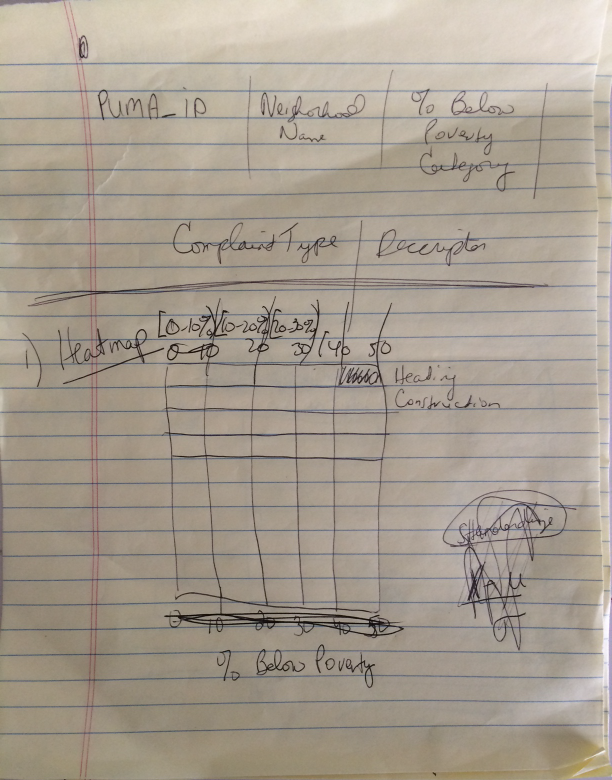 PUMA_ID Neighorhood % Below
Name Poverty
Category
Complaint Type Descriptor
[0-10%) [10-20%) [20-30%)
1) Heatmap 0 10 20 30 [40 50
Heating
Construction
Standardize
μ
σ
0 10 20 30 40 50
% Below Poverty